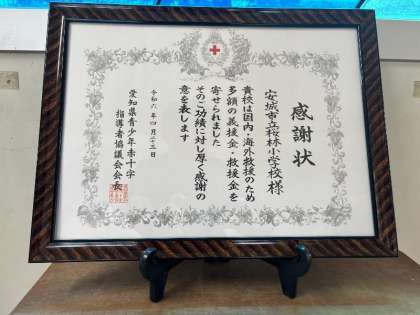 感謝状
安城市立桜林小学校様
貴校は国内・海外救援のため
多額の義援金・救援金を
寄せられました
そのご功績に対し厚く感謝の
意を表します
令和六年四月二三日
愛知県青少年赤十字
指導者協議会会長